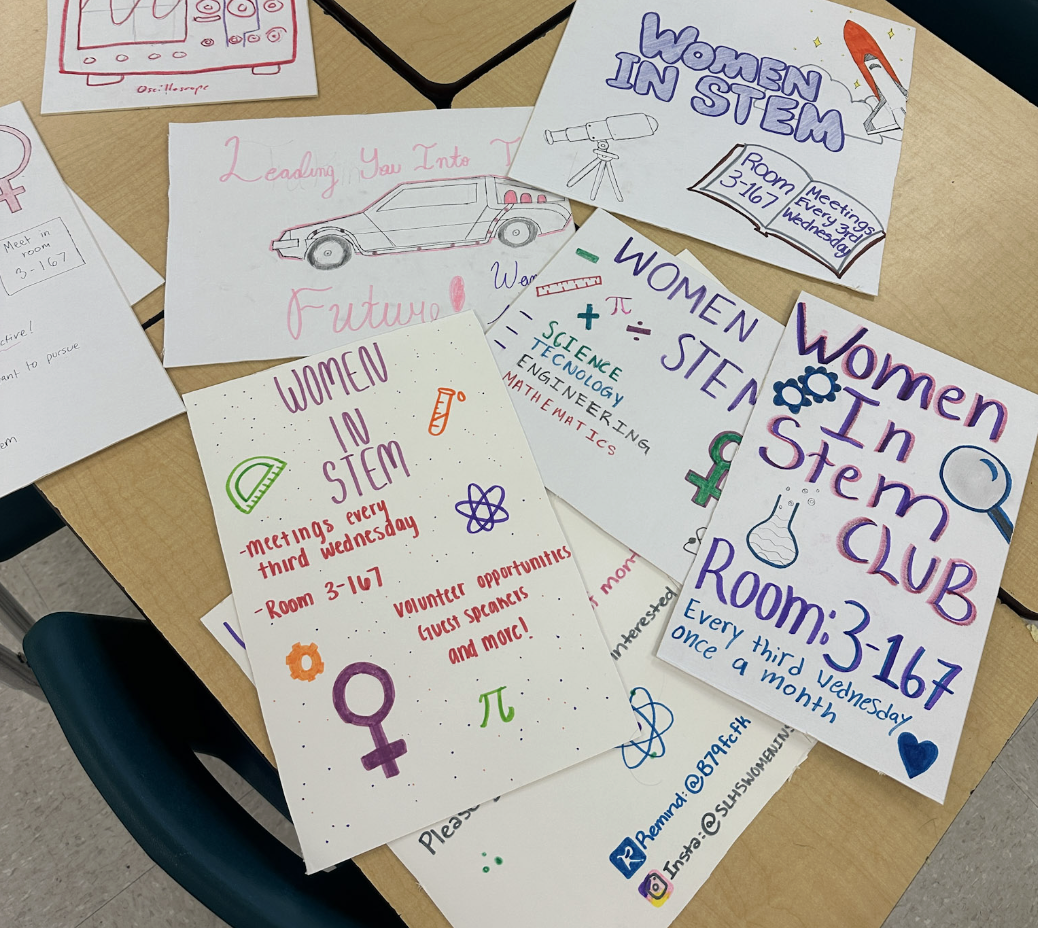 Oscilloscope
Meet in
room
3-167
ctive!
ant to pursue
em
Leading You Into
Future!
WOMEN
IN STEM
Room
3-167
Meetings
Every 3rd
Wednesday
WOMEN
STEM
π
SCIENCE
TECNOLOGY
ENGINEERING
MATHEMATICS
Women
In
Stem
CLUB
Room: 3-167
Every third wednesday
once a month
WOMEN
IN
STEM
-meetings every
third wednesday
-Room 3-167
volunteer opportunities
Guest speakers
and more!
π
interested
Remind: @B79fcfk
Insta: @SLHSWOMENINS